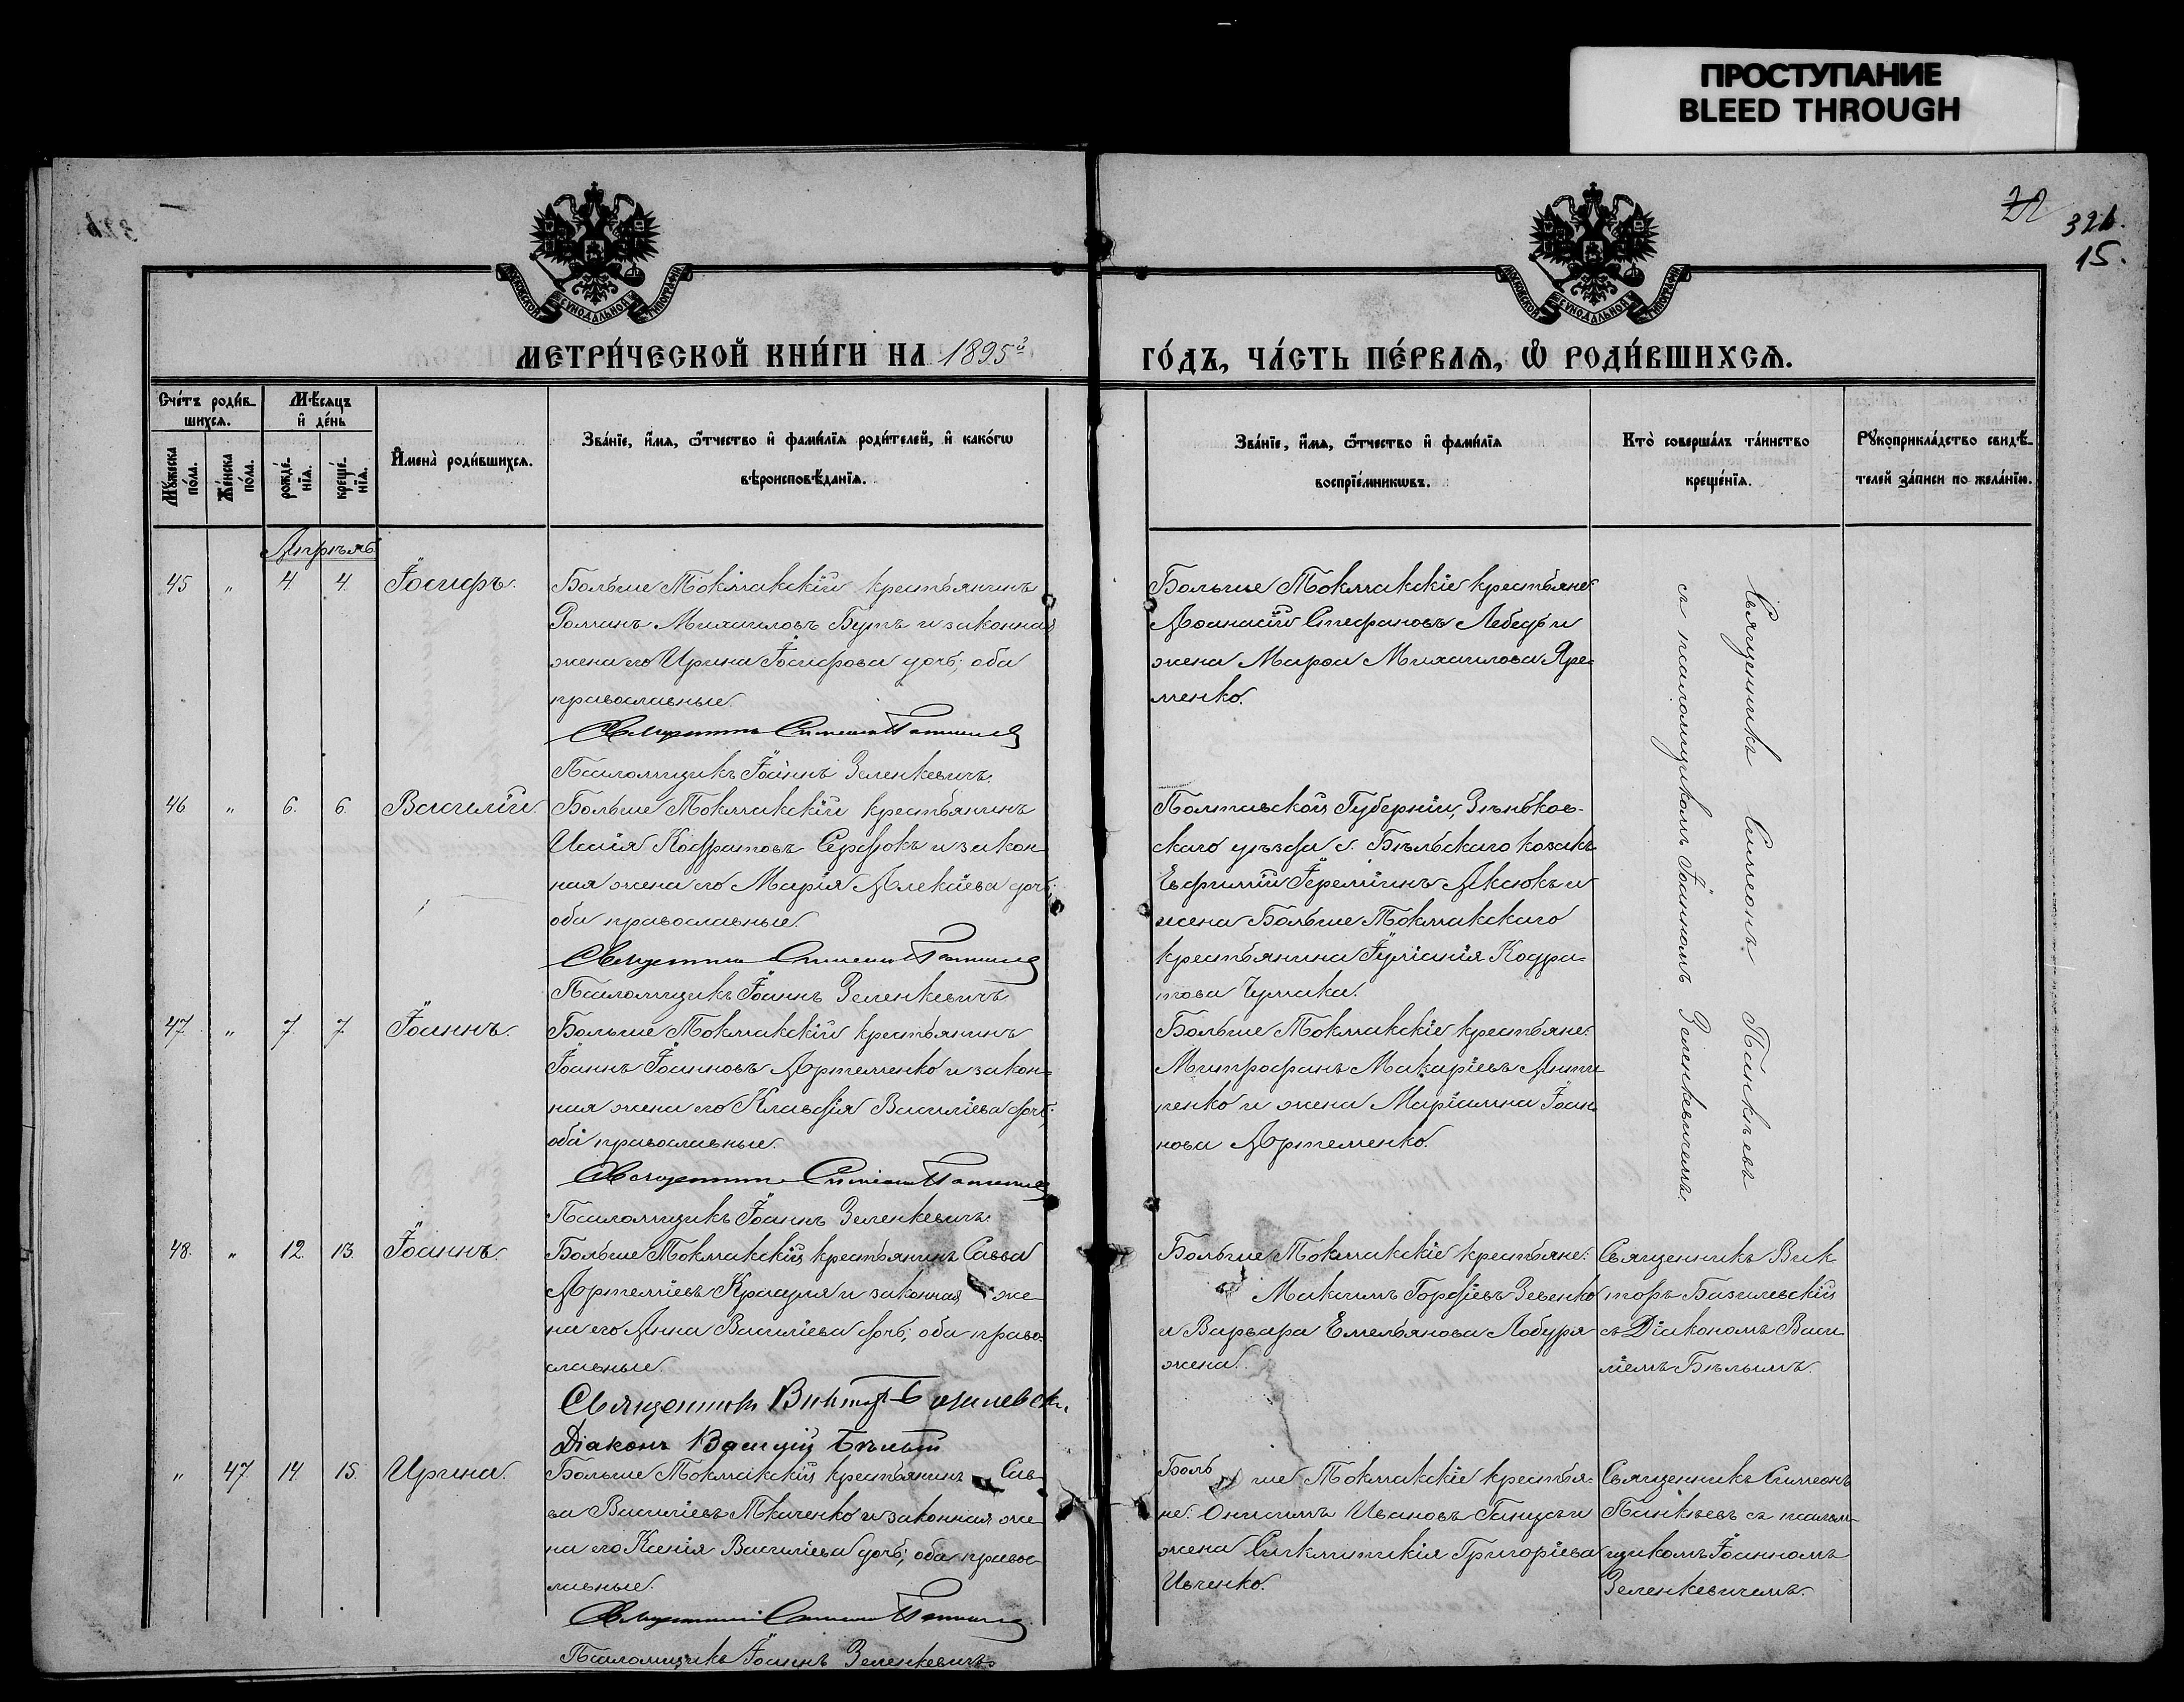 ПРОСТУПАНИЕ
BLEED THROUGH
326.
15.
МОСКОВСКОЙ СѴНОДАЛЬНОЙ ТИПОГРАФІИ
МОСКОВСКОЙ СѴНОДАЛЬНОЙ ТИПОГРАФІИ
МЕТРИ́ЧЕСКОЙ КНИ́ГИ НА 1895й
ГО́ДЪ, ЧА́СТЬ ПЕ́РВАЯ, Ѡ РОДИ́ВШИХСЯ.
Сче́тъ роди́в-
шихся.
Мѣ́сяцъ
и де́нь
Мꙋ́жеска
по́ла.
Же́нска
по́ла.
рожде́-
нїя.
креще́-
нїя.
Имена̀ роди́вшихся.
Зва́нїе, и́мя, ѻ́тчество и фами́лїя роди́телей, и како́гѡ
вѣроисповѣ́данїя.
Зва́нїе, и́мя, ѻ́тчество и фами́лїя
воспрїе́мникѡвъ.
Кто̀ соверша́лъ та́инство
креще́нїя.
Рꙋкоприкла́дство свидѣ́-
телей за́писи по жела́нїю.
Апрѣль
45 " 4. 4. Іосифъ.
Больше Токмакскій крестьянинъ
Романъ Михаиловъ Бутъ и законная
жена его Ирина Іосифова дочь; оба
православные.
Священникъ Симеонъ Панкѣевъ
Псаломщикъ Іоаннъ Зеленкевичъ.
Больше Токмакскіе крестьяне:
Аѳанасій Стефановъ Лебедь и
жена Марѳа Михаилова Яре-
менко.
Священникъ Симеонъ Панкѣевъ
съ псаломщикомъ Іоанномъ Зеленкевичемъ.
46 " 6. 6. Василій.
Больше Токмакскій крестьянинъ
Исаія Кодратовъ Сердюкъ и закон-
ная жена его Марія Алексіева дочь;
оба православные.
Священникъ Симеонъ Панкѣевъ
Псаломщикъ Іоаннъ Зеленкевичъ
Полтавской Губерніи, Зѣньков-
скаго уѣзда с. Бѣльскаго козакъ
Евфимій Іереміинъ Аксюкъ и
жена Больше Токмакскаго
крестьянина Іуліанія Кодра-
това Чумака.
47. " 7. 7. Іоаннъ.
Больше Токмакскій крестьянинъ
Іоаннъ Іоанновъ Артеменко и закон-
ная жена его Клавдія Василіева дочь;
оба православные.
Священникъ Симеонъ Панкѣевъ
Псаломщикъ Іоаннъ Зеленкевичъ.
Больше Токмакскіе крестьяне:
Митрофанъ Макаріевъ Анти-
пенко и жена Маріамна Іоан-
нова Артеменко.
48. " 12. 13. Іоаннъ.
Больше Токмакскій крестьянинъ Савва
Артеміевъ Крауля и законная же-
на его Анна Василіева дочь; оба право-
славные.
Священникъ Викторъ Базилевскій
Діаконъ Василій Бѣлый
Больше Токмакскіе крестьяне:
Максимъ Гордіевъ Зевенко
и Варвара Емельянова Лобуря
жена.
Священникъ Вик-
торъ Базилевскій
съ Діакономъ Васи-
ліемъ Бѣлымъ.
" 47 14. 15. Ирина.
Больше Токмакскій крестьянинъ Сав-
ва Василіевъ Ткаченко и законная же-
на его Ксенія Василіева дочь; оба правос-
лавные.
Священникъ Симеонъ Панкѣевъ
Псаломщикъ Іоаннъ Зеленкевичъ
Больше Токмакскіе крестья-
не: Онисимъ Ивановъ Ганцъ и
жена Синклитикія Григоріева
Ивченко.
Священникъ Симеонъ
Панкѣевъ съ псалом-
щикомъ Іоанномъ
Зеленкевичемъ.